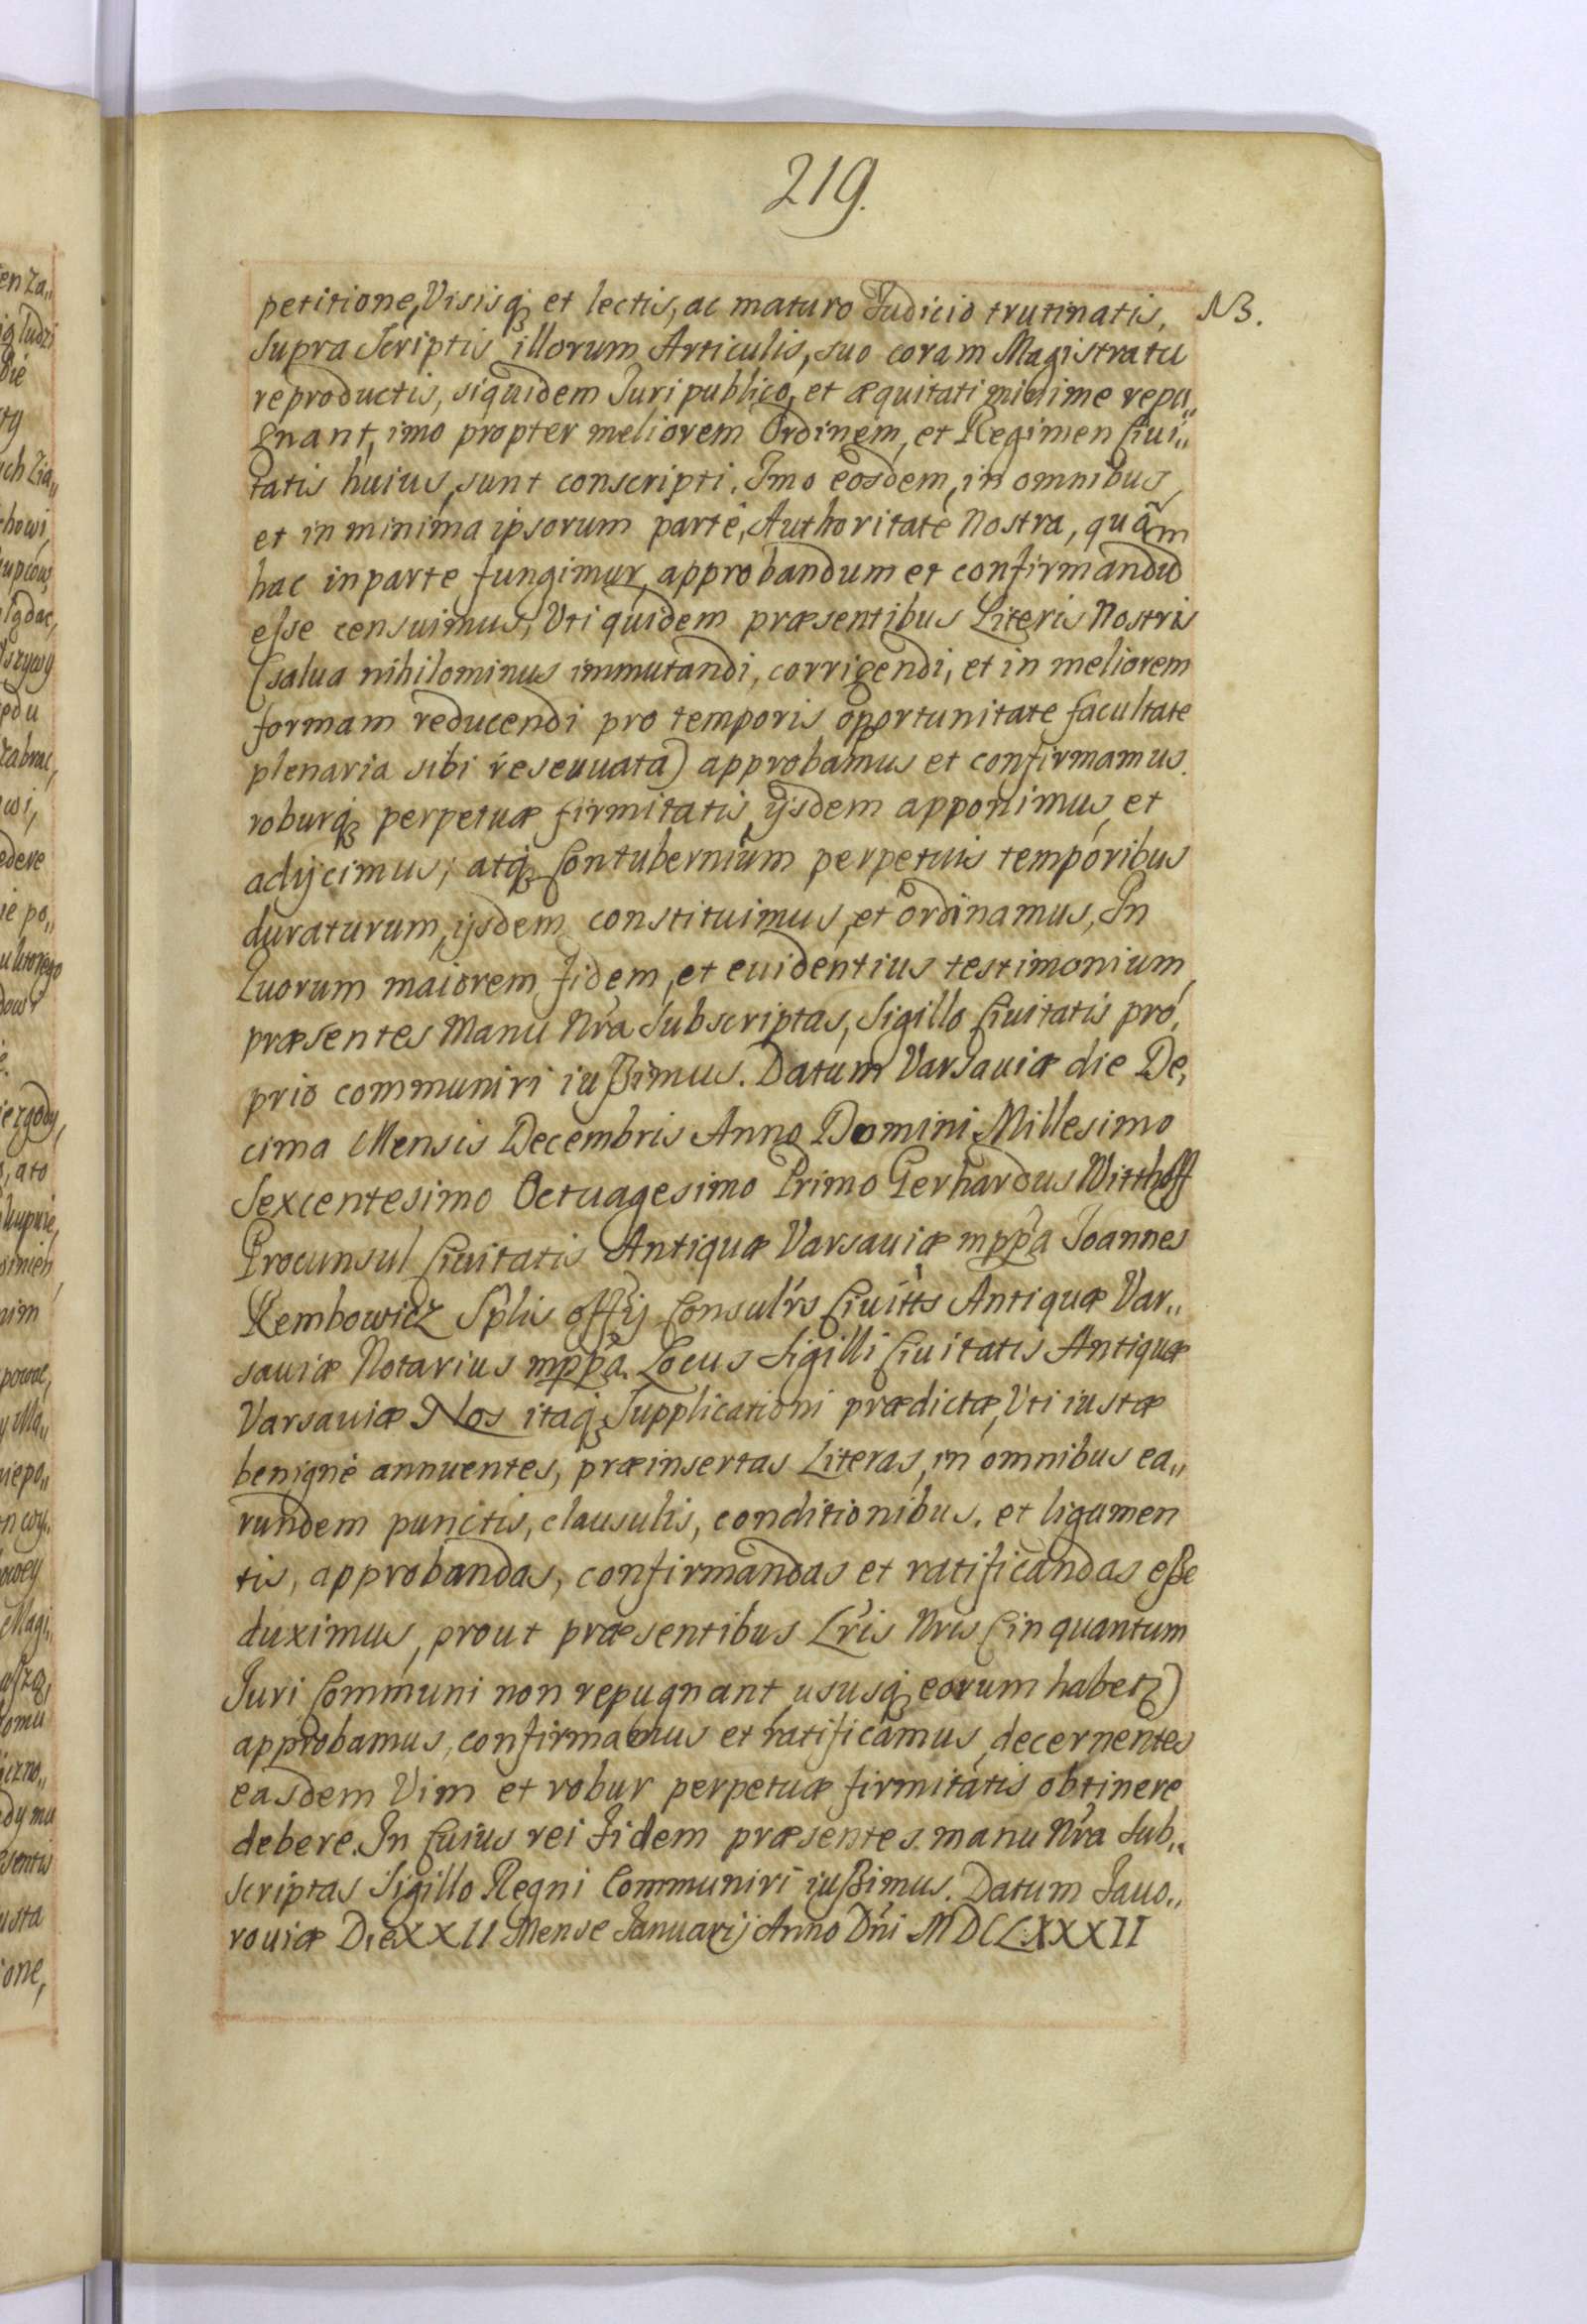 219.
petitione, Visisq; et lectis, ac maturo Judicio trutinatis, NB.
Supra Scriptis illorum Articulis, suo coram Magistratu
reproductis, siquidem Juri publico, et æquitati minime repu„
gnant, imo propter meliorem Ordinem, et Regimen Ciui„
tatis huius, sunt conscripti. Imo eosdem, in omnibus,
et in minima ipsorum parte, Authoritate Nostra, quâm
hac in parte fungimur, approbandum et confirmandũ
esse censuimus, Uti quidem præsentibus Literis Nostris
(salua nihilominus immutandi, corrigendi, et in meliorem
formam reducendi pro temporis opportunitate facultate
plenaria sibi reseuuata) approbamus et confirmamus.
roburq; perpetuæ firmitatis, ijsdem apponimus, et
adijcimus; atq; Contubernium perpetuis temporibus
duraturum, ijsdem constituimus, et ordinamus, In
Quorum maiorem fidem, et euidentius testimonium,
præsentes Manu Nr̃a Subscriptas, Sigillo Ciuitatis pro,
prio communiri iußimus. Datum Varsauiæ die De,
cima Mensis Decembris Anno Domini Millesimo
Sexcentesimo Octuagesimo Primo Gerhardus Witthoff
Procunsul Ciuitatis Antiquæ Varsauiæ mpp̃a Joannes
Rembowicz Sp̃lis offĩj Consulr̃s Ciuitts Antiquæ Var„
sauiæ Notarius mpp̃a. Locus Sigilli Ciuitatis Antiquæ
Varsauiæ Nos itaq; Supplicationi prædictæ, Uti iustæ
benignè annuentes, præinsertas Literas, in omnibus ea„
rundem punctis, clausulis, conditionibus. et ligamen
tis, approbandas, confirmandas et ratificandas eße
duximus, prout præsentibus Lr̃is Nris (in quantum
Juri Communi non repugnant, ususq; eorum habetȝ)
approbamus, confirmamus et ratificamus, decernentes
easdem Vim et robur perpetuæ firmitatis obtinere
debere. In Cuius rei fidem præsentes manu Nr̃a Sub„
scriptas Sigillo Regni Communiri iußimus. Datum Jauo„
rouiæ Die XXII Mense Januarij Anno Dñi MDCLXXXII